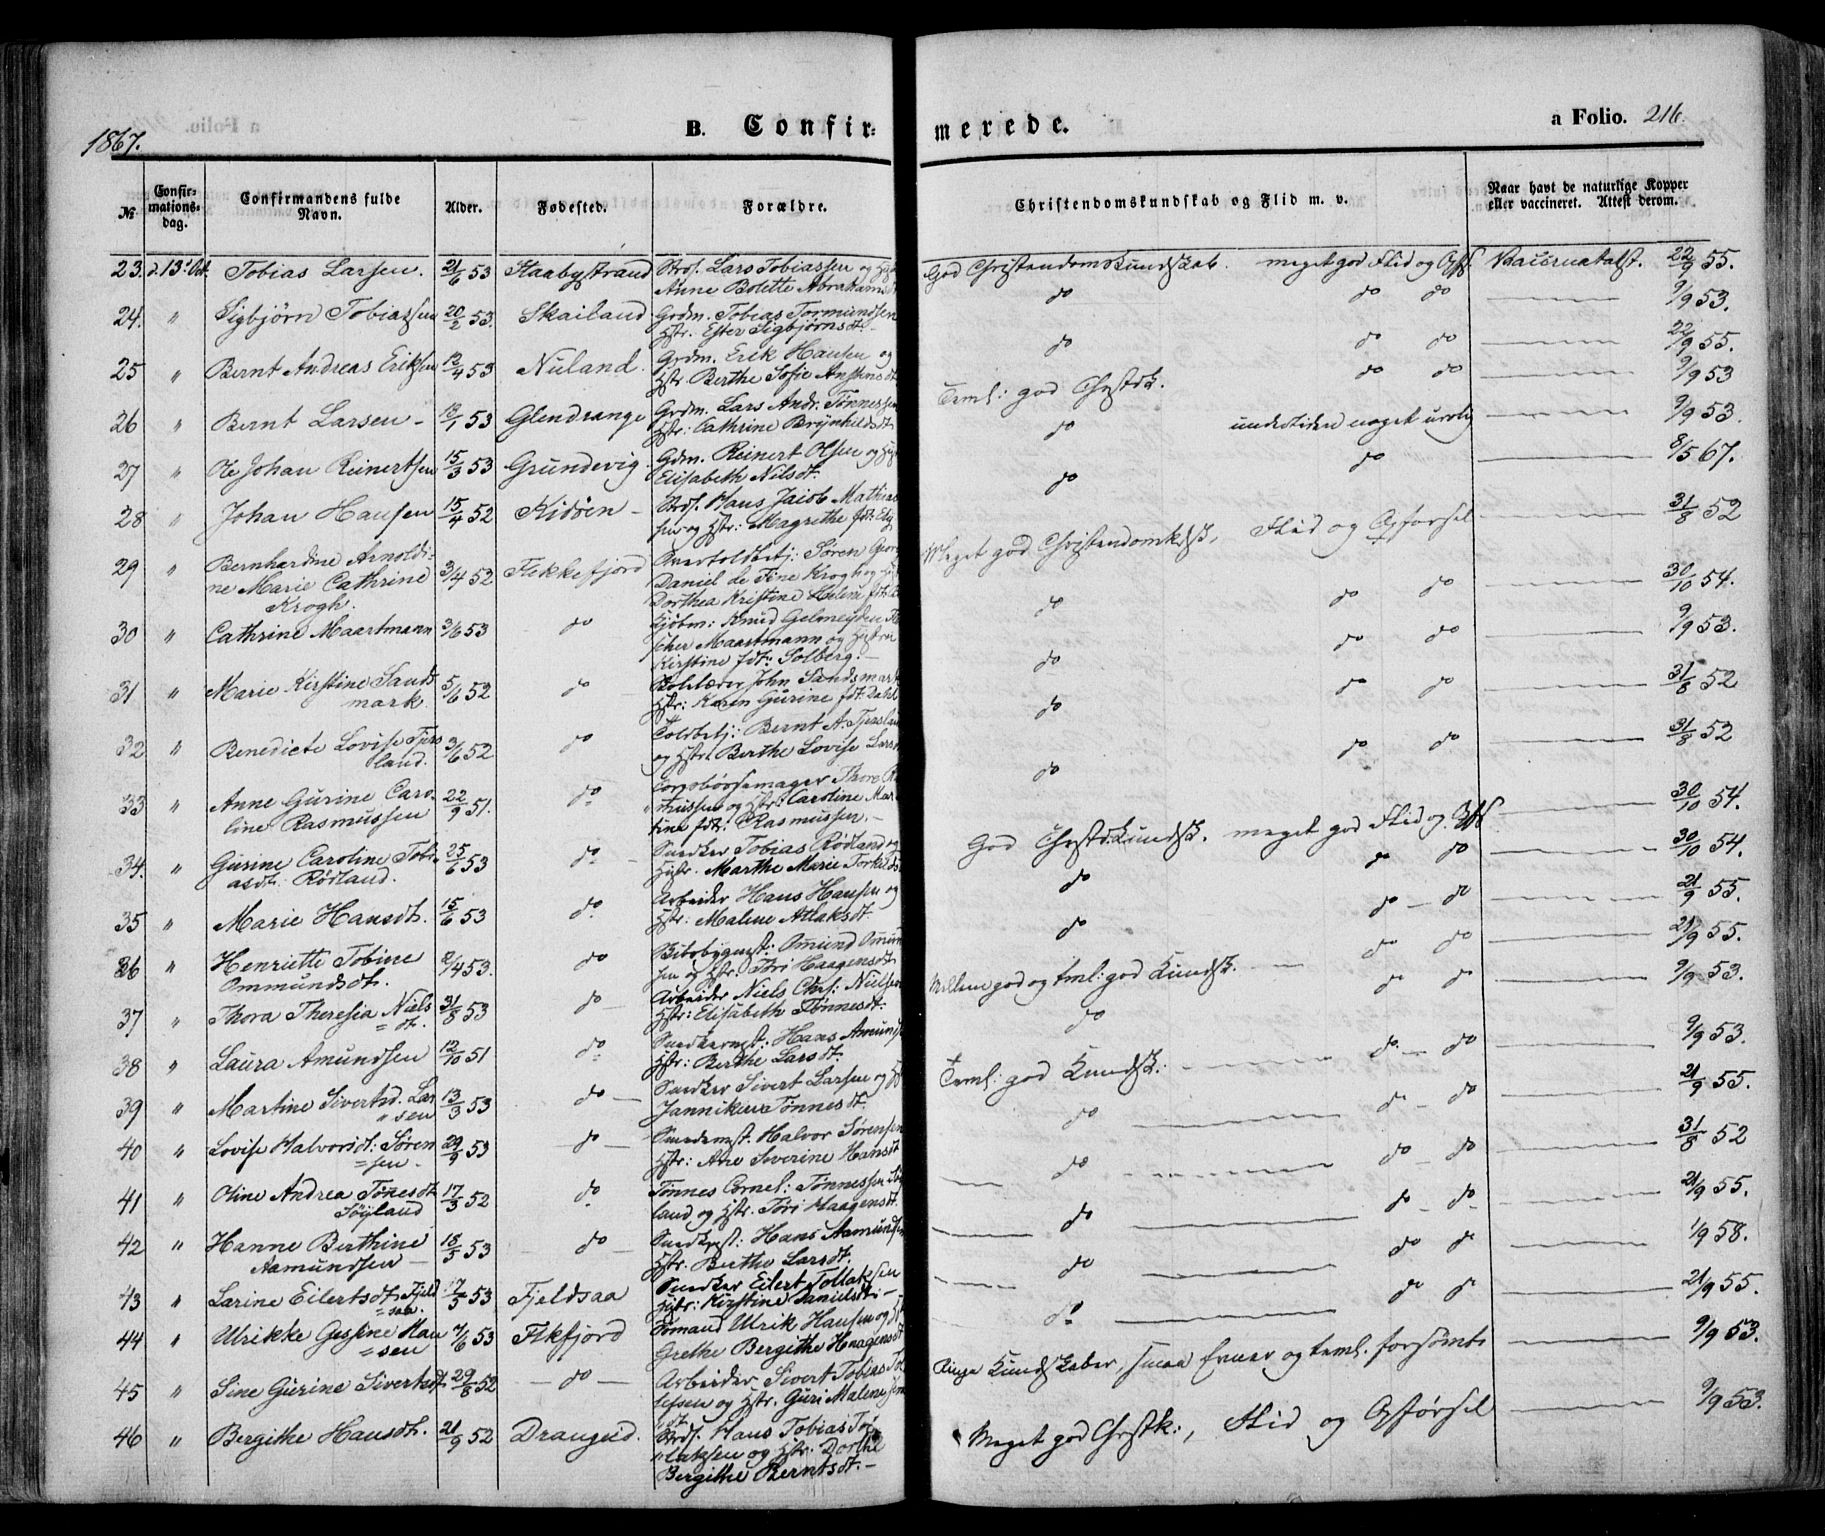 1867.
B. Confir-
merede.
a Folio. 216.
№
Confir-
mations-
dag.
Confirmandens fulde
Navn.
Alder.
Fødested.
Forældre.
Christendomskundskab og Flid m. v.
Naar havt de naturlige Kopper
eller vaccineret. Attest derom.
23. d. 13' Oct. Tobias Larsen. 21/6 53 Staabystrand Strds. Lars Tobiassen og Hstr
Anne Bolette Abrahamsdt
God Christendomskundskab. meget god Flid og Opfs. Vaccineatatst. 22/9 55.
24. " Sigbjørn Tobiassen 20/2 53. Skailand Grdm. Tobias Tormundsen
Hstr. Ester Sigbjørnsdt.
do do do 9/9 53.
25 " Bernt Andreas Eriksen 12/4 53 Nuland. Grdm. Erik Hansen og
Hstr. Berthe Sofie Anstensdt
do do do 22/9 55.
26 " Bernt Larsen - 12/1 53 Glendrange Grdm. Lars Andr: Tønnessen
Hstr: Cathrine Brynhildsdt
Teml: god Chrstdk. do do 9/9 53
27 " Ole Johan Reinertsen 15/3 53 Grundevig Gdm. Reinert Olsen og Hstr
Elisabeth Nilsdt.
do undertiden noget urolig 9/9 53.
28 " Johan Hansen 15/4 52 Kidøen - Strds. Hans Jacob Mathias
sen og Hstr: Magrethe fdt:
do do 8/5 67.
29 " Bernhardine Arnoldi-
ne Marie Cathrine
Krogh. 3/4 52 Flekkefjord Overtoldbetj: Søren Georg
Daniel de Fine Krogh og Hstr
Dorthea Kristine Helene fdt:
Meget god Christendomkdsk, Flid og Opførsel 31/8 52
30 " Cathrine Maartmann 3/6 53 do Kjøbm: Knud Gelmeyden Fi
scher Maartmann og Hstru
Kirstine fdt: Solberg. -
do do do 30/10 54.
31 " Marie Kirstine Sands
mark 5/6 52 do John Sandsmark
Hstr: Karen Gurine fdt: Dahl
do do do 9/9 53.
32 " Benedicte Lovise Tjers
land. 3/6 52 do Toldbetj: Bernt A. Tjersland
og Hstr. Berthe Lovise Lars
do do do 31/8 52
33 " Anne Gurine Caro-
line Rasmussen 22/9 51. do Corpsbørsemager Thore Ras
mussen og Hstr: Caroline Mar
tine fdt: Rasmussen. -
do do do 31/8 52
34. " Gurine Caroline Tobi-
asdt. Rødland. 25/6 53 do Snedker Tobias Rødland og
Hstr. Marthe Marie Torkelsdt
God Chrstdkundsk. meget god Flid og Opfs 30/10 54.
35 " Marie Hansdt. 15/6 53 do Arbeider Hans Hansen og
Hstr: Malene Atlaksdt.
do do do 30/10 54.
36 " Henriette Tobine
Ommundsdt. 2/4 53. do Omund Omund
sen og Hstr. Tori Haagensdt.
do do do 21/9 55.
37 " Thora Theresia Niels
dt. 31/8 53 do Arbeider Niels Chr: Nielsen
Hstr: Elisabeth Tønnesdt.
Mellem god og teml: god Kundsk. do do 21/9 55.
38 " Laura Amundsen 12/10 51 do Snedkermst: Hans Amunds
Hstr: Berthe Larsdt.
do do do 9/9 53.
39 " Martine Sivertsd. Lar
sen 13/3 53 do Snedker Sivert Larsen og Hst
Janniken Tønnesdt.
Teml: god Kundsk: do do 9/9 53.
40 " Lovise Halvorsdt: Søren
sen 29/9 53 do Smedemst. Halvor Sørensen
Hstr: Ane Severine Hansdt
do do do 21/9 55.
41 " Oline Andrea Tønesdt
Søyland 17/3 52 do Tønnes Cornel: Tønnessen Søy
land og Hstr. Tori Haagensdt.
do do do 31/8 52
42 " Hanne Berthine
Aamundsen - 18/5 53 do Snedkmst: Hans Aamundsen
Hstr. Berthe Larsdt.
do do do 21/9 55.
43 " Larine Eilertsdt Fjeld
saa. 17/5 53 Fjeldsaa Snedker Eilert Tollaksen
Hstr: Kirstine Danielsdt. -
do do do 1/9 58.
44 " Ulrikke Gesine Han
sen 4/6 53 Flkfjord Sømand Ulrik Hansen og Hst
Grethe Bergithe Haagensdt
do do do 21/9 55.
45 " Sine Gurine Sivertsdt 29/8 52 do Arbeider Sivert Tobias Tol
lefsen og Hstr. Guri Malene
dt
Ringe Kundskaber, smaa Evner og teml. forsømt 9/9 53.
46 " Bergithe Hansdt. 21/9 52 Draugud. Strds. Hans Tobias Tol
laksen og Hstr. Dorthe
Bergithe Berntsdt. -
Meget god Chrstk:, Flid og Opførsel 9/9 53.